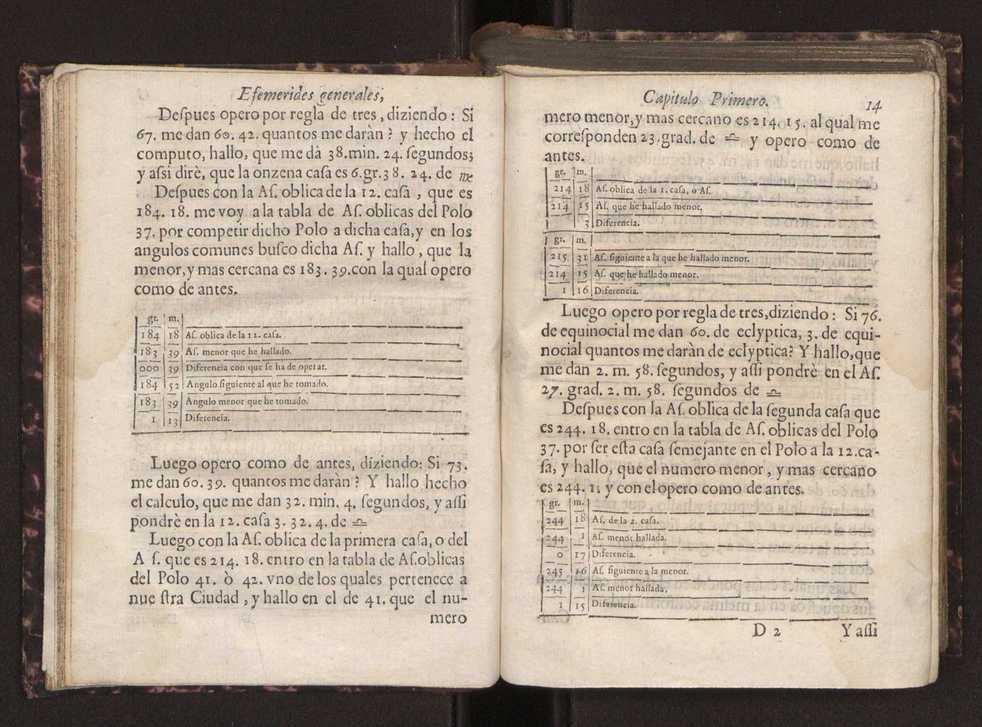 Efemerides generales,
Despues opero por regla de tres, diziendo: Si
67. me dan 60. 42. quantos me daràn? y hecho el
computo, hallo, que me dà 38. min. 24. segundos;
y assi dirè, que la onzena casa es 6. gr. 38. 24. de ♏
Despues con la As. oblica de la 12. casa, que es
184. 18. me voy a la tabla de As. oblicas del Polo
37. por competir dicho Polo a dicha casa, y en los
angulos comunes busco dicha As. y hallo, que la
menor, y mas cercana es 183. 39. con la qual opero
como de antes.
gr. m.
184 18 As. oblica de la 11. casa.
183 39 As. menor que he hallado.
000 39 Diferencia con que se ha de operar.
184 52 Angulo siguiente al que he tomado.
183 39 Angulo menor que he tomado.
1 13 Diferencia.
Luego opero como de antes, diziendo: Si 73.
me dan 60. 39. quantos me daràn? Y hallo hecho
el calculo, que me dan 32. min. 4. segundos, y assi
pondrè en la 12. casa 3. 32. 4. de ♎
Luego con la As. oblica de la primera casa, o del
A s. que es 214. 18. entro en la tabla de As. oblicas
del Polo 41. ò 42. vno de los quales pertenece a
nue stra Ciudad, y hallo en el de 41. que el nu-
mero
Capitulo Primero. 14
mero menor, y mas cercano es 214. 15. al qual me
corresponden 23. grad. de ♎ y opero como de
antes.
gr. m.
214 18 As. oblica de la 1. casa, o As.
214 15 As. que he hallado menor.
3 Diferencia.
gr. m.
215 31 As. siguiente a la que he hallado menor.
214 15 As. que he hallado menor.
1 16 Diferencia.
Luego opero por regla de tres, diziendo: Si 76.
de equinocial me dan 60. de eclyptica, 3. de equi-
nocial quantos me daràn de eclyptica? Y hallo, que
me dan 2. m. 58. segundos, y assi pondrè en el As.
27. grad. 2. m. 58. segundos de ♎
Despues con la As. oblica de la segunda casa que
es 244. 18. entro en la tabla de As. oblicas del Polo
37. por ser esta casa semejante en el Polo a la 12. ca-
sa, y hallo, que el numero menor, y mas cercano
es 244. 1. y con el opero como de antes.
gr. m.
244 18 As. de la 2. casa.
244 1 As. menor hallada.
0 17 Diferencia.
245 16 As. siguiente a la menor.
244 1 As. menor hallada.
1 15 Diferencia.
D 2 Y assi